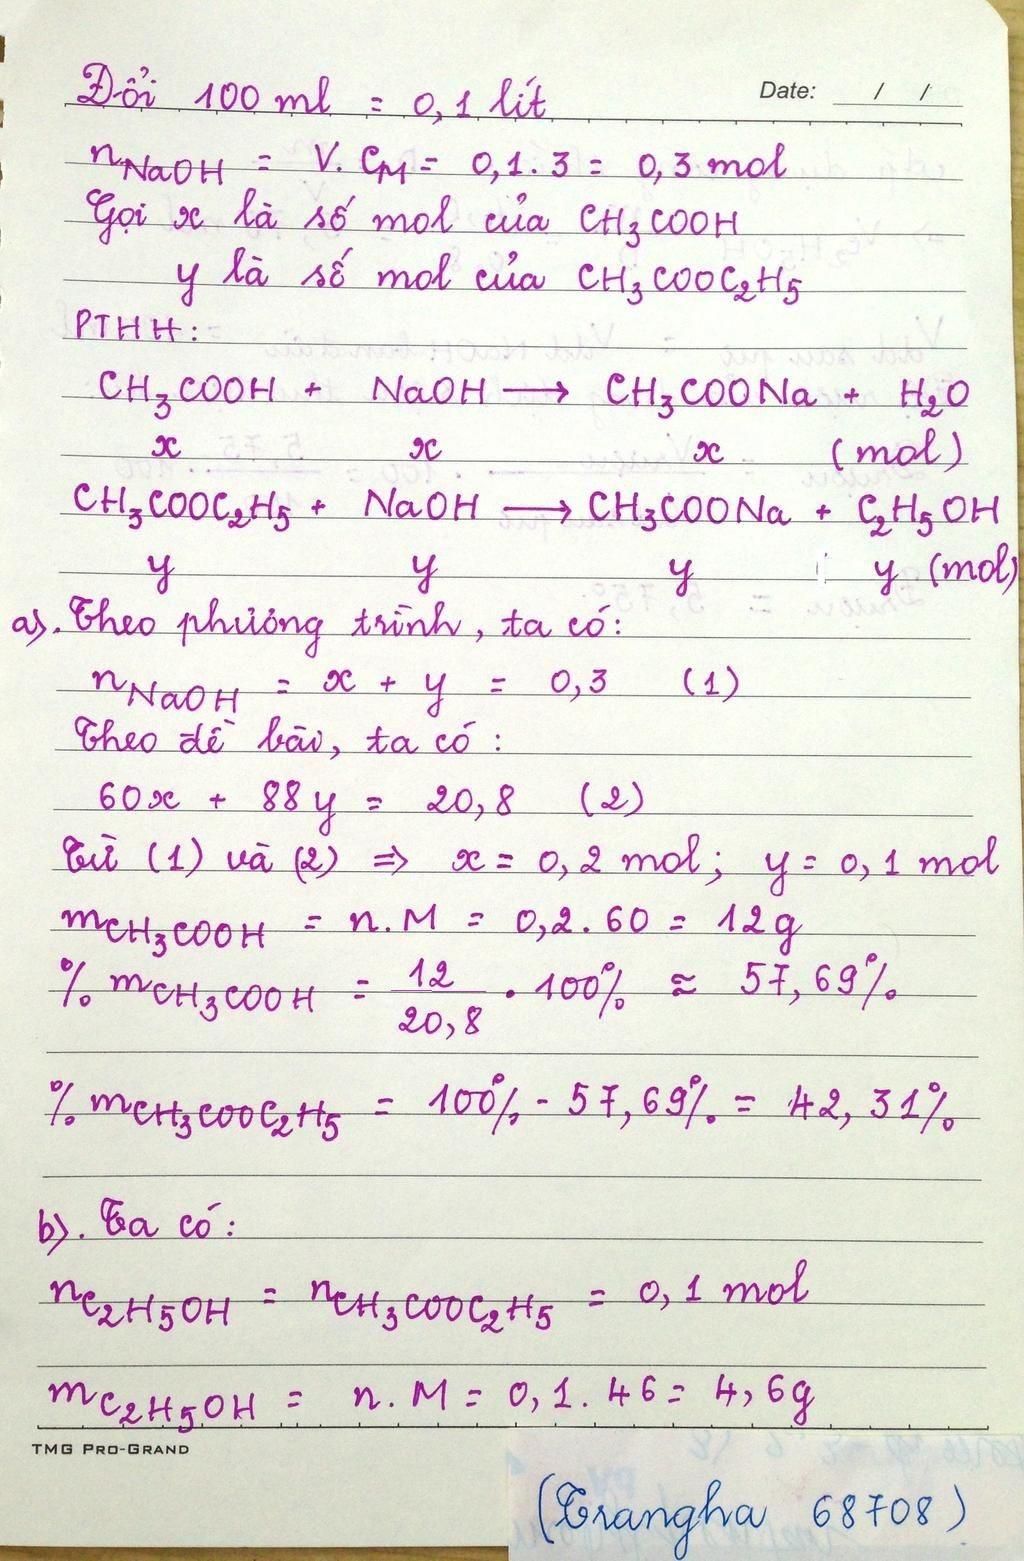 Đổi 100 ml = 0,1 lít
Date: / /
nNaOH = V. CM = 0,1. 3 = 0,3 mol
Gọi x là số mol của CH3COOH
y là số mol của CH3COOC2H5
PTHH:
CH3COOH + NaOH → CH3COONa + H2O
x x x (mol)
CH3COOC2H5 + NaOH → CH3COONa + C2H5OH
y y y y (mol)
a). Theo phương trình, ta có:
nNaOH = x + y = 0,3 (1)
Theo đề bài, ta có:
60x + 88y = 20,8 (2)
Từ (1) và (2) => x = 0,2 mol; y = 0,1 mol
mCH3COOH = n.M = 0,2. 60 = 12g
% mCH3COOH = 12/20,8 . 100% ≈ 57,69%
% mCH3COOC2H5 = 100% - 57,69% = 42,31%
b). Ta có:
nC2H5OH = nCH3COOC2H5 = 0,1 mol
mC2H5OH = n.M = 0,1. 46 = 4,6g
TMG PRO-GRAND
(Trangha 68708)